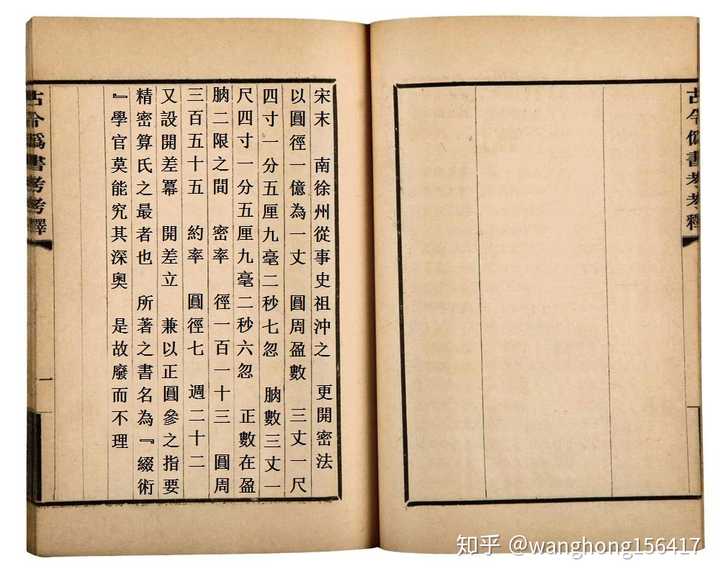 古今僞書考考釋
宋末 南徐州從事史祖沖之 更開密法
以圓徑一億為一丈 圓周盈數 三丈一尺
四寸一分五厘九毫二秒七忽 朒數三丈一
尺四寸一分五厘九毫二秒六忽 正數在盈
朒二限之間 密率 徑一百一十三 圓周
三百五十五 約率 圓徑七 週二十二
又設開差冪 開差立 兼以正圓參之指要
精密算氏之最者也 所著之書名為『綴術
『學官莫能究其深奧 是故廢而不理
古今僞書考考釋
一
知乎 @wanghong156417